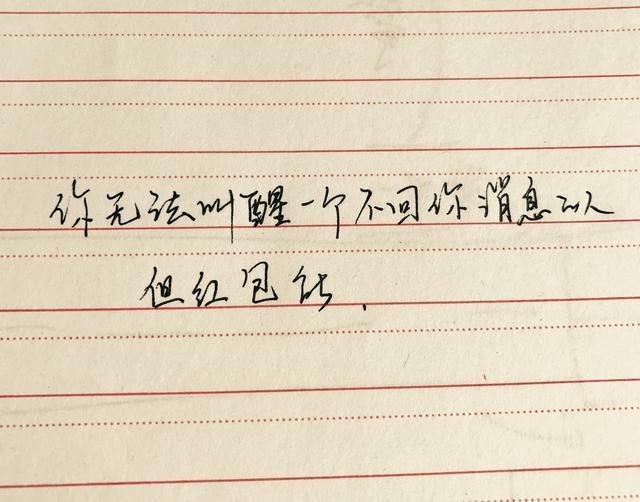 你无法叫醒一个不回你消息的人
但红包能.